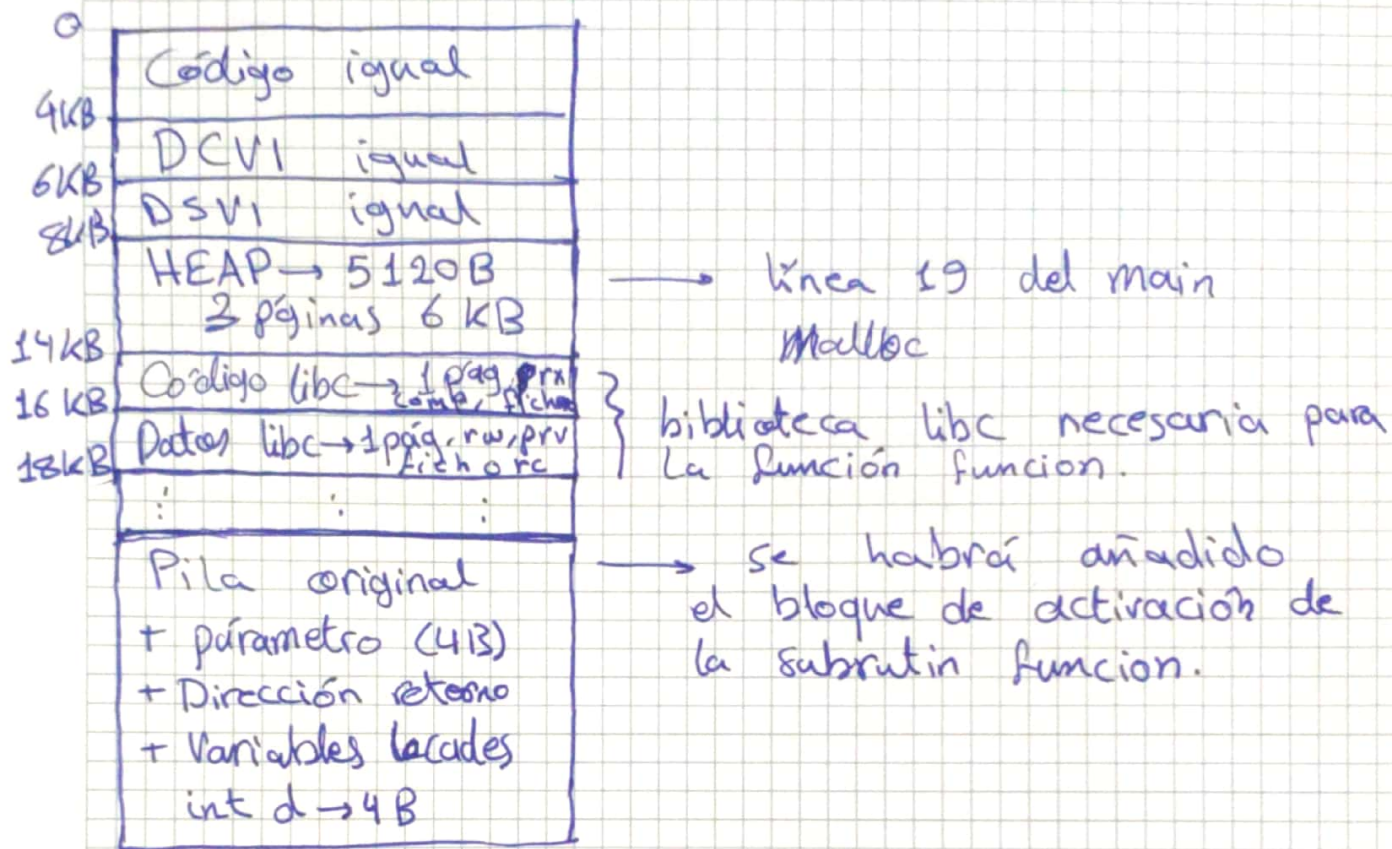 0
Código igual
4KB
DCVI igual
6KB
DSVI igual
8KB
HEAP → 5120B
3 páginas 6 KB
→ línea 19 del main
Malloc
14KB
Código libc → 1 pág, rx
comp, fich
16 KB
Datos libc → 1 pág, rw, prv
fich o rc
18KB
} biblioteca libc necesaria para
la función funcion.
⋮ ⋮ ⋮
Pila original
+ párametro (4B)
+ Dirección retorno
+ Variables locales
int d → 4B
→ se habrá añadido
el bloque de activación de
la subrutin funcion.